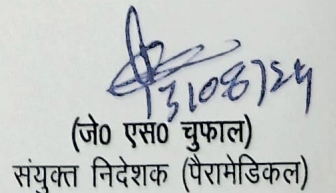 31/08/24
(जे0 एस0 चुफाल)
संयुक्त निदेशक (पैरामेडिकल)